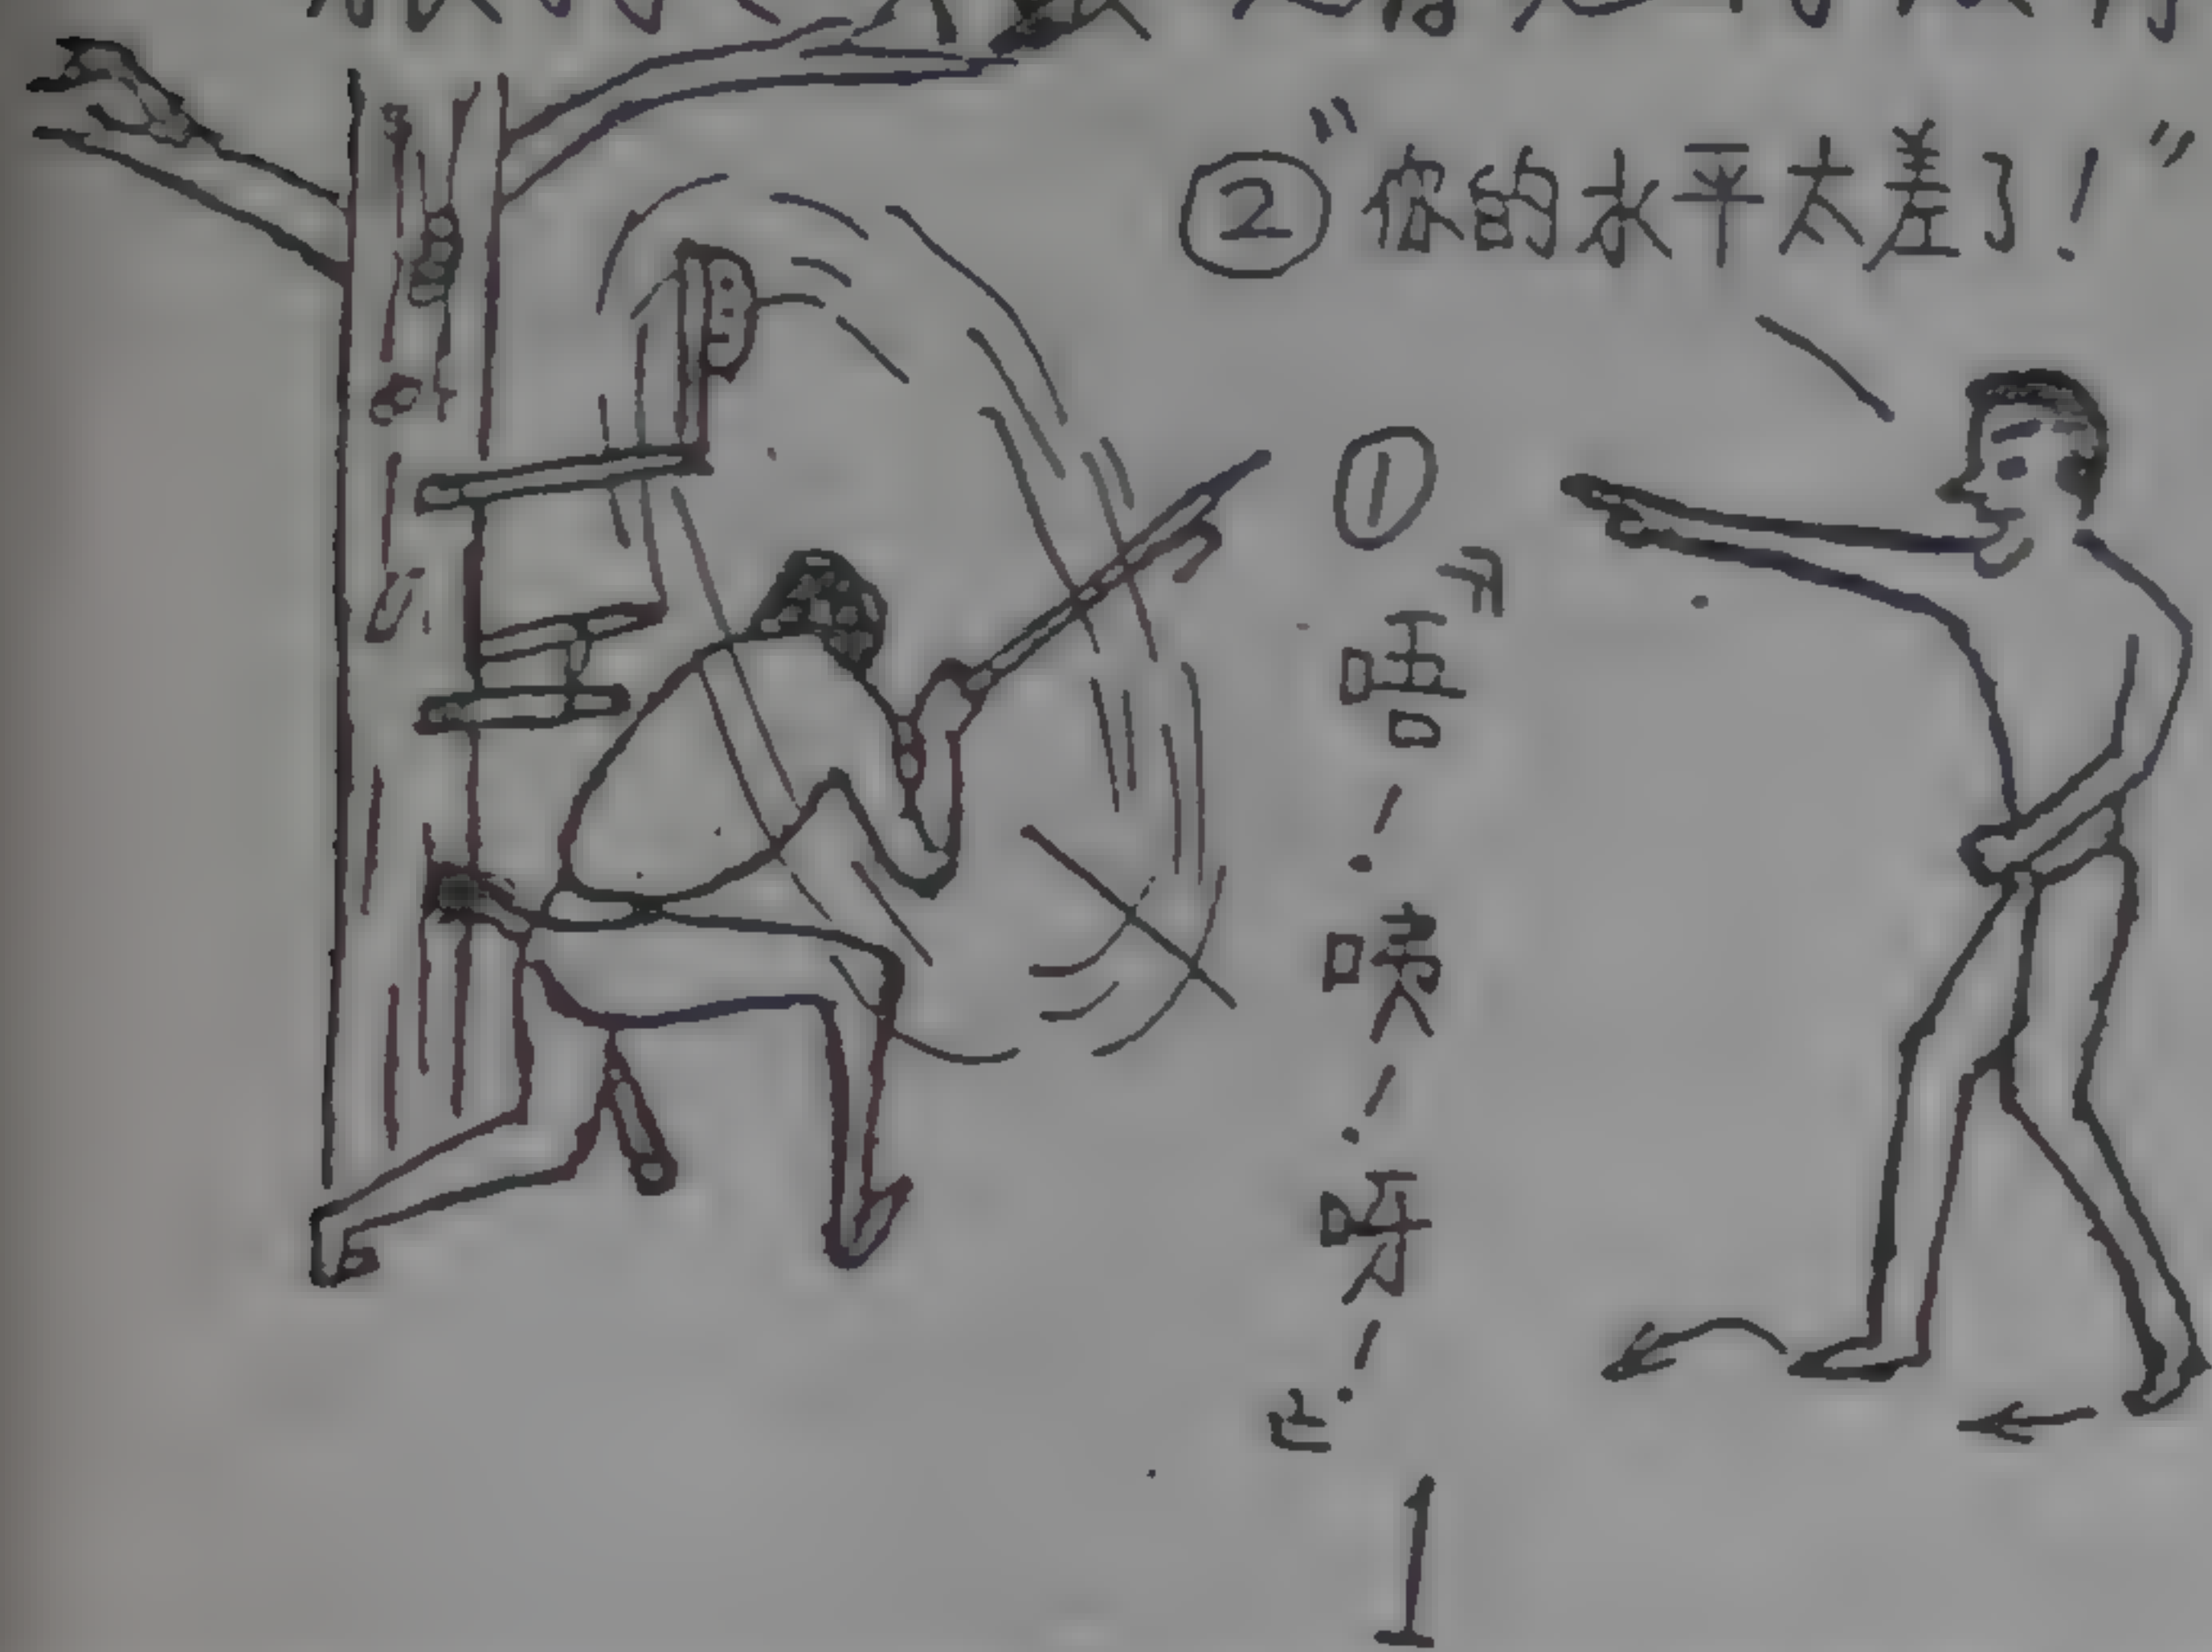 ② "你的水平太差了！"
①
『唔！唉！呀！』
1